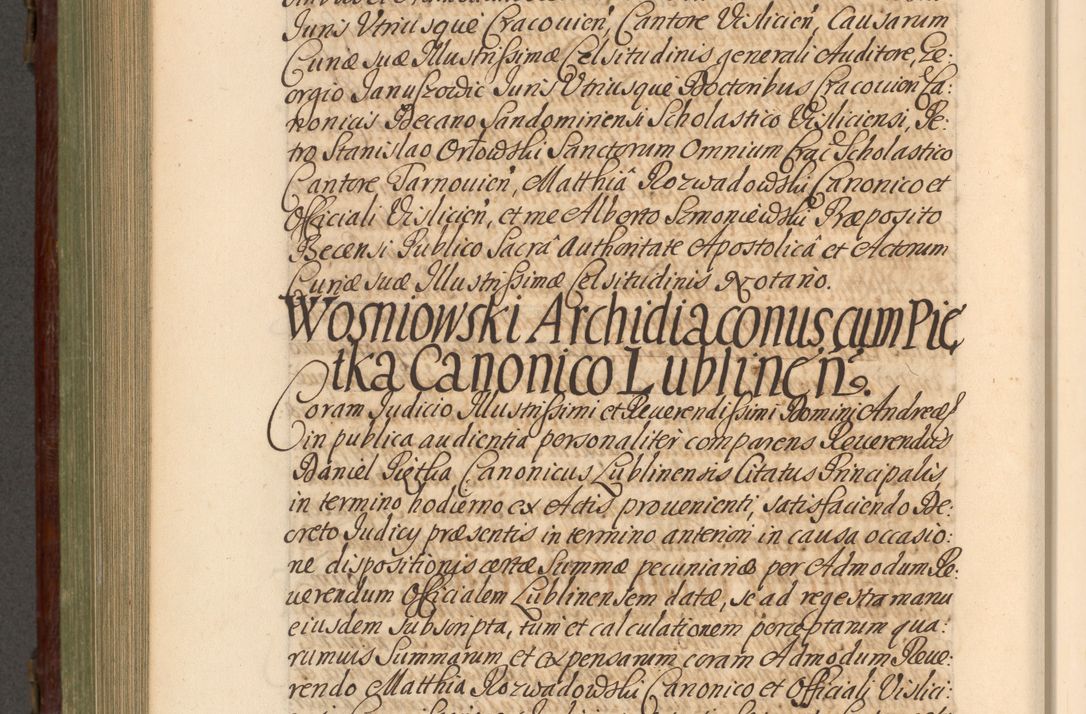 Juris Utriusque Cracouień, Cantore Vislicień, Causarum
Curiæ suæ Illustrissimæ Celsitudinis generali Auditore, Ge:
orgio Januszowic Juris Utriusque Doctoribus Cracouień Ca:
nonicis Decano Sandomiriensi Scholastico Visliciensi, Pe:
tro Stanislao Orłowski Sanctorum Omnium Crac Scholastico
Cantore Tarnouień, Matthiâ Rozwadowski Canonico et
Officiali Vislicień, et me Alberto Semoniewski Præposito
Becensi Publico Sacrâ Authoritate Apostolicâ et Actorum
Curiæ suæ Illustrissimæ Celsitudinis Notario.
Wosniowski Archidiaconus cum Pię
tka Canonico Lublineń.
Coram Judicio Illustrissimi et Reuerendissimi Domini Andreæ
in publica audientia personaliter comparens Reuerendus
Daniel Piętka Canonicus Lublinensis Citatus Principalis
in termino hodierno ex Actis prouenienti, satisfaciendo De:
creto Judicy præsentis in termino anteriori in causa occasio:
ne dispositionis certæ Summæ pecuniariæ per Admodum Re:
uerendum Officialem Lublinensem datæ, se ad regestra manu
eiusdem subscripta, tum et calculationem perceptarum qua:
rumuis Summarum et expensarum coram Admodum Reue:
rendo Matthia Rozwadowski Canonico et Officiali Vislici: